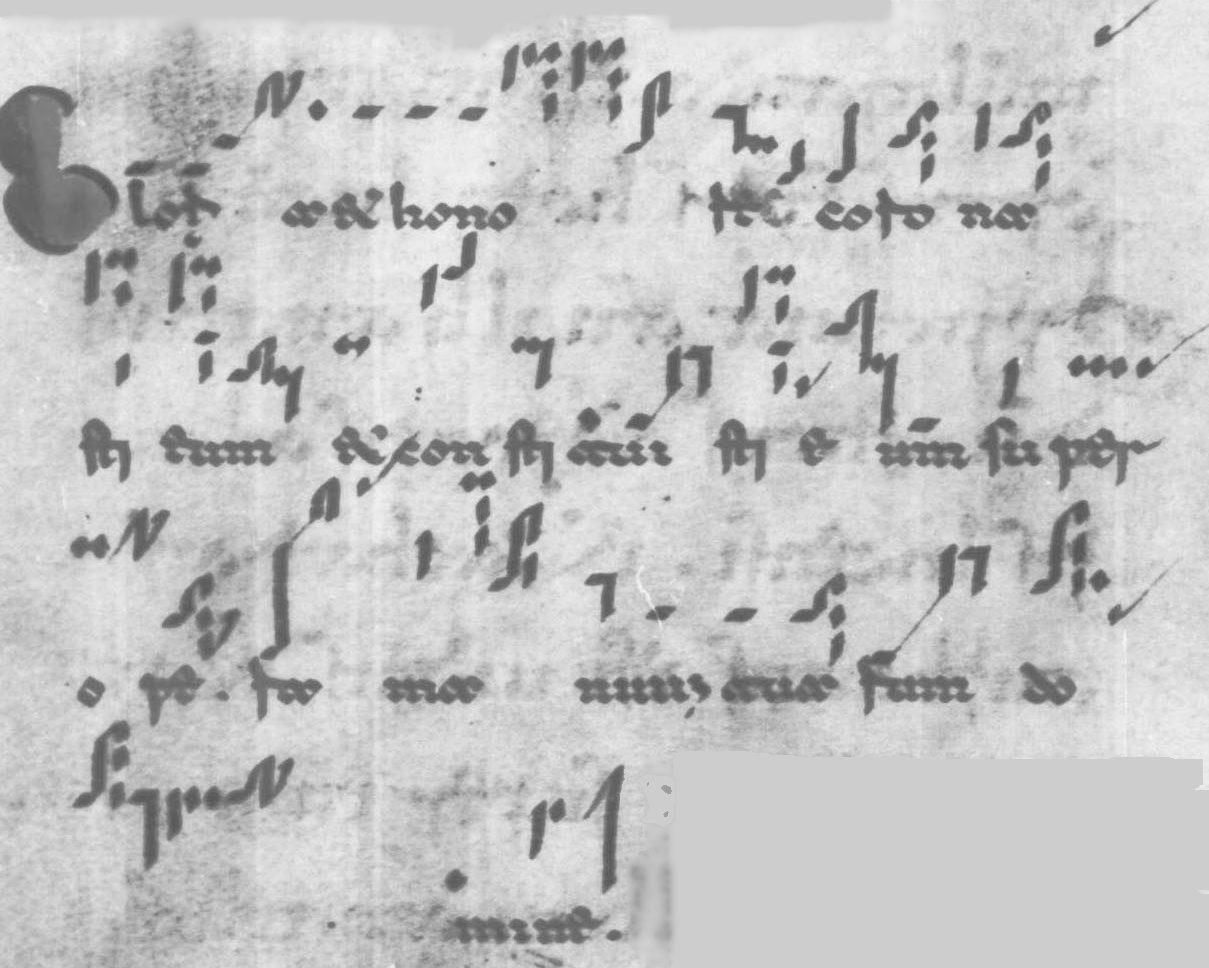 Gloria & hono re corona
sti eum & con sti tuisti e um super
o pe. ra ma nuum tuarum do
mine.